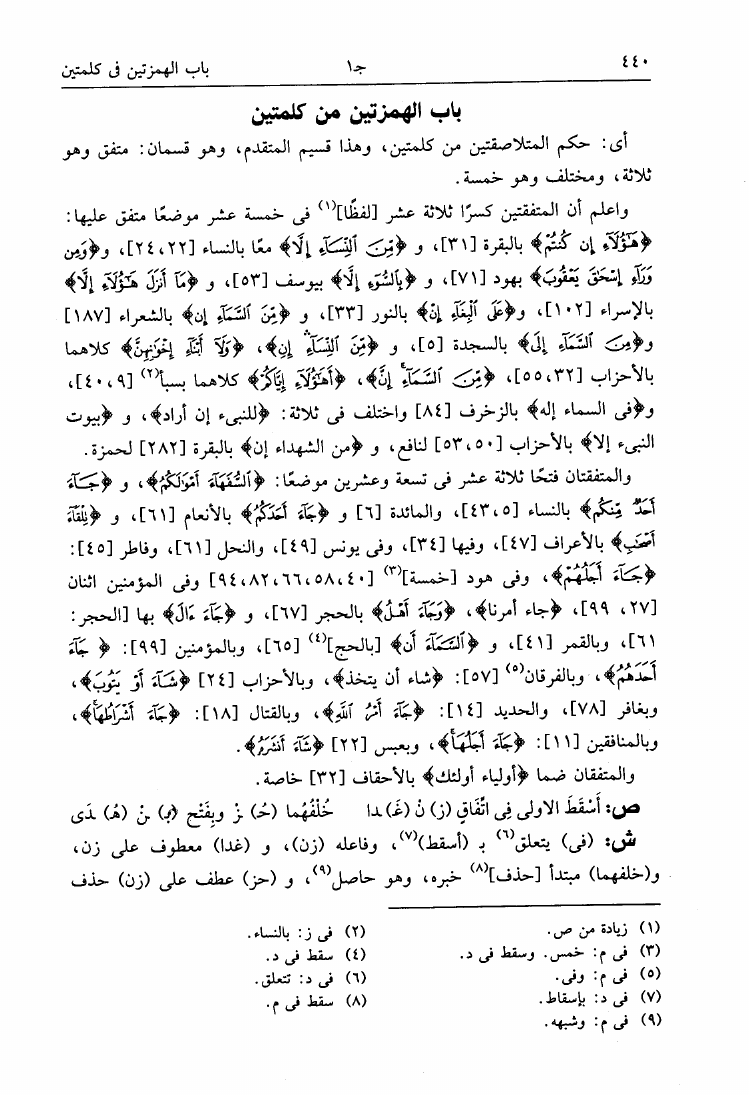 ٤٤٠
جـ١
باب الهمزتين فى كلمتين
باب الهمزتين من كلمتين
أى: حكم المتلاصقتين من كلمتين، وهذا قسيم المتقدم، وهو قسمان: متفق وهو
ثلاثة، ومختلف وهو خمسة.
واعلم أن المتفقتين كسرًا ثلاثة عشر [لفظًا](١) فى خمسة عشر موضعًا متفق عليها:
﴿هَٰٓؤُلَآءِ إِن كُنتُمْ﴾ بالبقرة [٣١]، و ﴿مِّنَ ٱلنِّسَآءِ إِلَّا﴾ معًا بالنساء [٢٤،٢٢]، و﴿وَمِن
وَرَآءِ إِسْحَٰقَ يَعْقُوبَ﴾ بهود [٧١]، و ﴿بِٱلسُّوٓءِ إِلَّا﴾ بيوسف [٥٣]، و ﴿مَآ أَنزَلَ هَٰٓؤُلَآءِ إِلَّا﴾
بالإسراء [١٠٢]، و﴿عَلَى ٱلْبِغَآءِ إِنْ﴾ بالنور [٣٣]، و ﴿مِّنَ ٱلسَّمَآءِ إِن﴾ بالشعراء [١٨٧]
و﴿مِنَ ٱلسَّمَآءِ إِلَى﴾ بالسجدة [٥]، و ﴿مِّنَ ٱلنِّسَآءِ إِنِ﴾، ﴿وَلَآ أَبْنَآءِ إِخْوَٰنِهِنَّ﴾ كلاهما
بالأحزاب [٥٥،٣٢]، ﴿مِّنَ ٱلسَّمَآءِ إِنَّ﴾، ﴿أَهَٰٓؤُلَآءِ إِيَّاكُمْ﴾ كلاهما بسبأ(٢) [٤٠،٩]،
و﴿فى السماء إله﴾ بالزخرف [٨٤] واختلف فى ثلاثة: ﴿للنبىء إن أراد﴾، و ﴿بيوت
النبىء إلا﴾ بالأحزاب [٥٣،٥٠] لنافع، و ﴿من الشهداء إن﴾ بالبقرة [٢٨٢] لحمزة.
والمتفقتان فتحًا ثلاثة عشر فى تسعة وعشرين موضعًا: ﴿ٱلسُّفَهَآءَ أَمْوَٰلَكُمُ﴾، و ﴿جَآءَ
أَحَدٌ مِّنكُم﴾ بالنساء [٤٣،٥]، والمائدة [٦] و ﴿جَآءَ أَحَدَكُمُ﴾ بالأنعام [٦١]، و ﴿تِلْقَآءَ
أَصْحَٰبِ﴾ بالأعراف [٤٧]، وفيها [٣٤]، وفى يونس [٤٩]، والنحل [٦١]، وفاطر [٤٥]:
﴿جَآءَ أَجَلُهُمْ﴾، وفى هود [خمسة](٣) [٩٤،٨٢،٦٦،٥٨،٤٠] وفى المؤمنين اثنان
[٢٧، ٩٩]، ﴿جاء أمرنا﴾، ﴿وَجَآءَ أَهْلُ﴾ بالحجر [٦٧]، و ﴿جَآءَ ءَالَ﴾ بها [الحجر:
٦١]، وبالقمر [٤١]، و ﴿ٱلسَّمَآءَ أَن﴾ [بالحج](٤) [٦٥]، وبالمؤمنين [٩٩]: ﴿ جَآءَ
أَحَدَهُمُ﴾، وبالفرقان(٥) [٥٧]: ﴿شاء أن يتخذ﴾، وبالأحزاب [٢٤] ﴿شَآءَ أَوْ يَتُوبَ﴾،
وبغافر [٧٨]، والحديد [١٤]: ﴿جَآءَ أَمْرُ ٱللَّهِ﴾، وبالقتال [١٨]: ﴿جَآءَ أَشْرَاطُهَا﴾،
وبالمنافقين [١١]: ﴿جَآءَ أَجَلُهَا﴾، وبعبس [٢٢] ﴿شَآءَ أَنشَرَهُ﴾.
والمتفقان ضما ﴿أولياء أولئك﴾ بالأحقاف [٣٢] خاصة.
ص: أَسْقَطَ الاولى فِى اتِّفَاقٍ (زِ) نْ (غَـ) ـدا خُلْفُهُما (حُـ) ـزْ وبِفَتْحِ (بِـ) ـنْ (هُـ) ـدَى
ش: (فى) يتعلق(٦) بـ (أسقط)(٧)، وفاعله (زن)، و (غدا) معطوف على زن،
و(خلفهما) مبتدأ [حذف](٨) خبره، وهو حاصل(٩)، و (حز) عطف على (زن) حذف
(١) زيادة من ص.
(٢) فى ز: بالنساء.
(٣) فى م: خمس. وسقط فى د.
(٤) سقط فى د.
(٥) فى م: وفى.
(٦) فى د: تتعلق.
(٧) فى د: بإسقاط.
(٨) سقط فى م.
(٩) فى م: وشبهه.